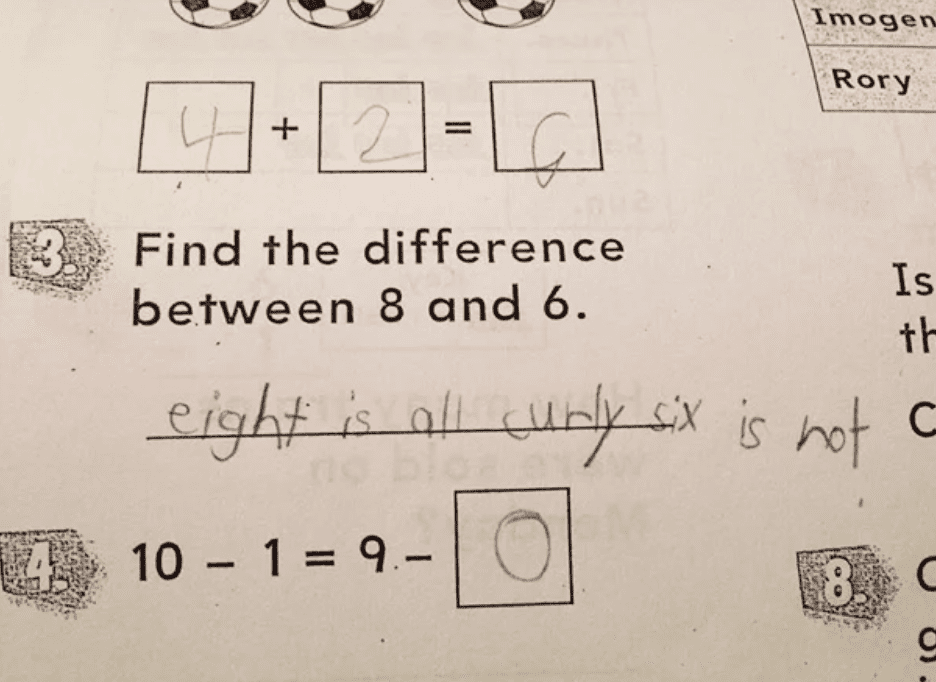 Imogen
Rory
4 + 2 = 6
3. Find the difference
between 8 and 6.
eight is all curly six is not
4. 10 - 1 = 9 - 0
Is
th
C
8.